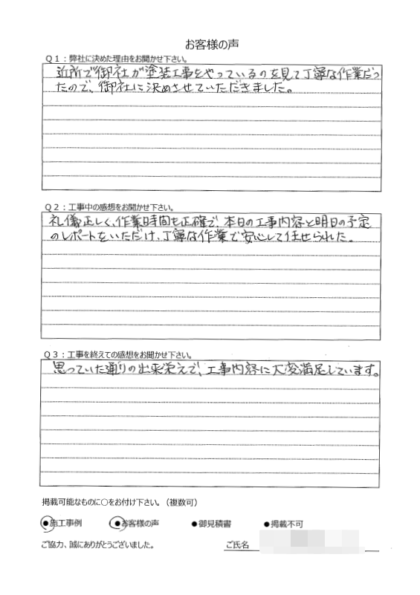 お客様の声
Q1：弊社に決めた理由をお聞かせ下さい。
近所で御社が塗装工事をやっているのを見て丁寧な作業だっ
たので、御社に決めさせていただきました。
Q2：工事中の感想をお聞かせ下さい。
礼儀正しく、作業時間も正確で、本日の工事内容と明日の予定
のレポートをいただけ、丁寧な作業で安心して任せられた。
Q3：工事を終えての感想をお聞かせ下さい。
思っていた通りの出来栄えで、工事内容に大変満足しています。
掲載可能なものに○をお付け下さい。（複数可）
●施工事例 ●お客様の声 ●御見積書 ●掲載不可
ご協力、誠にありがとうございました。 ご氏名